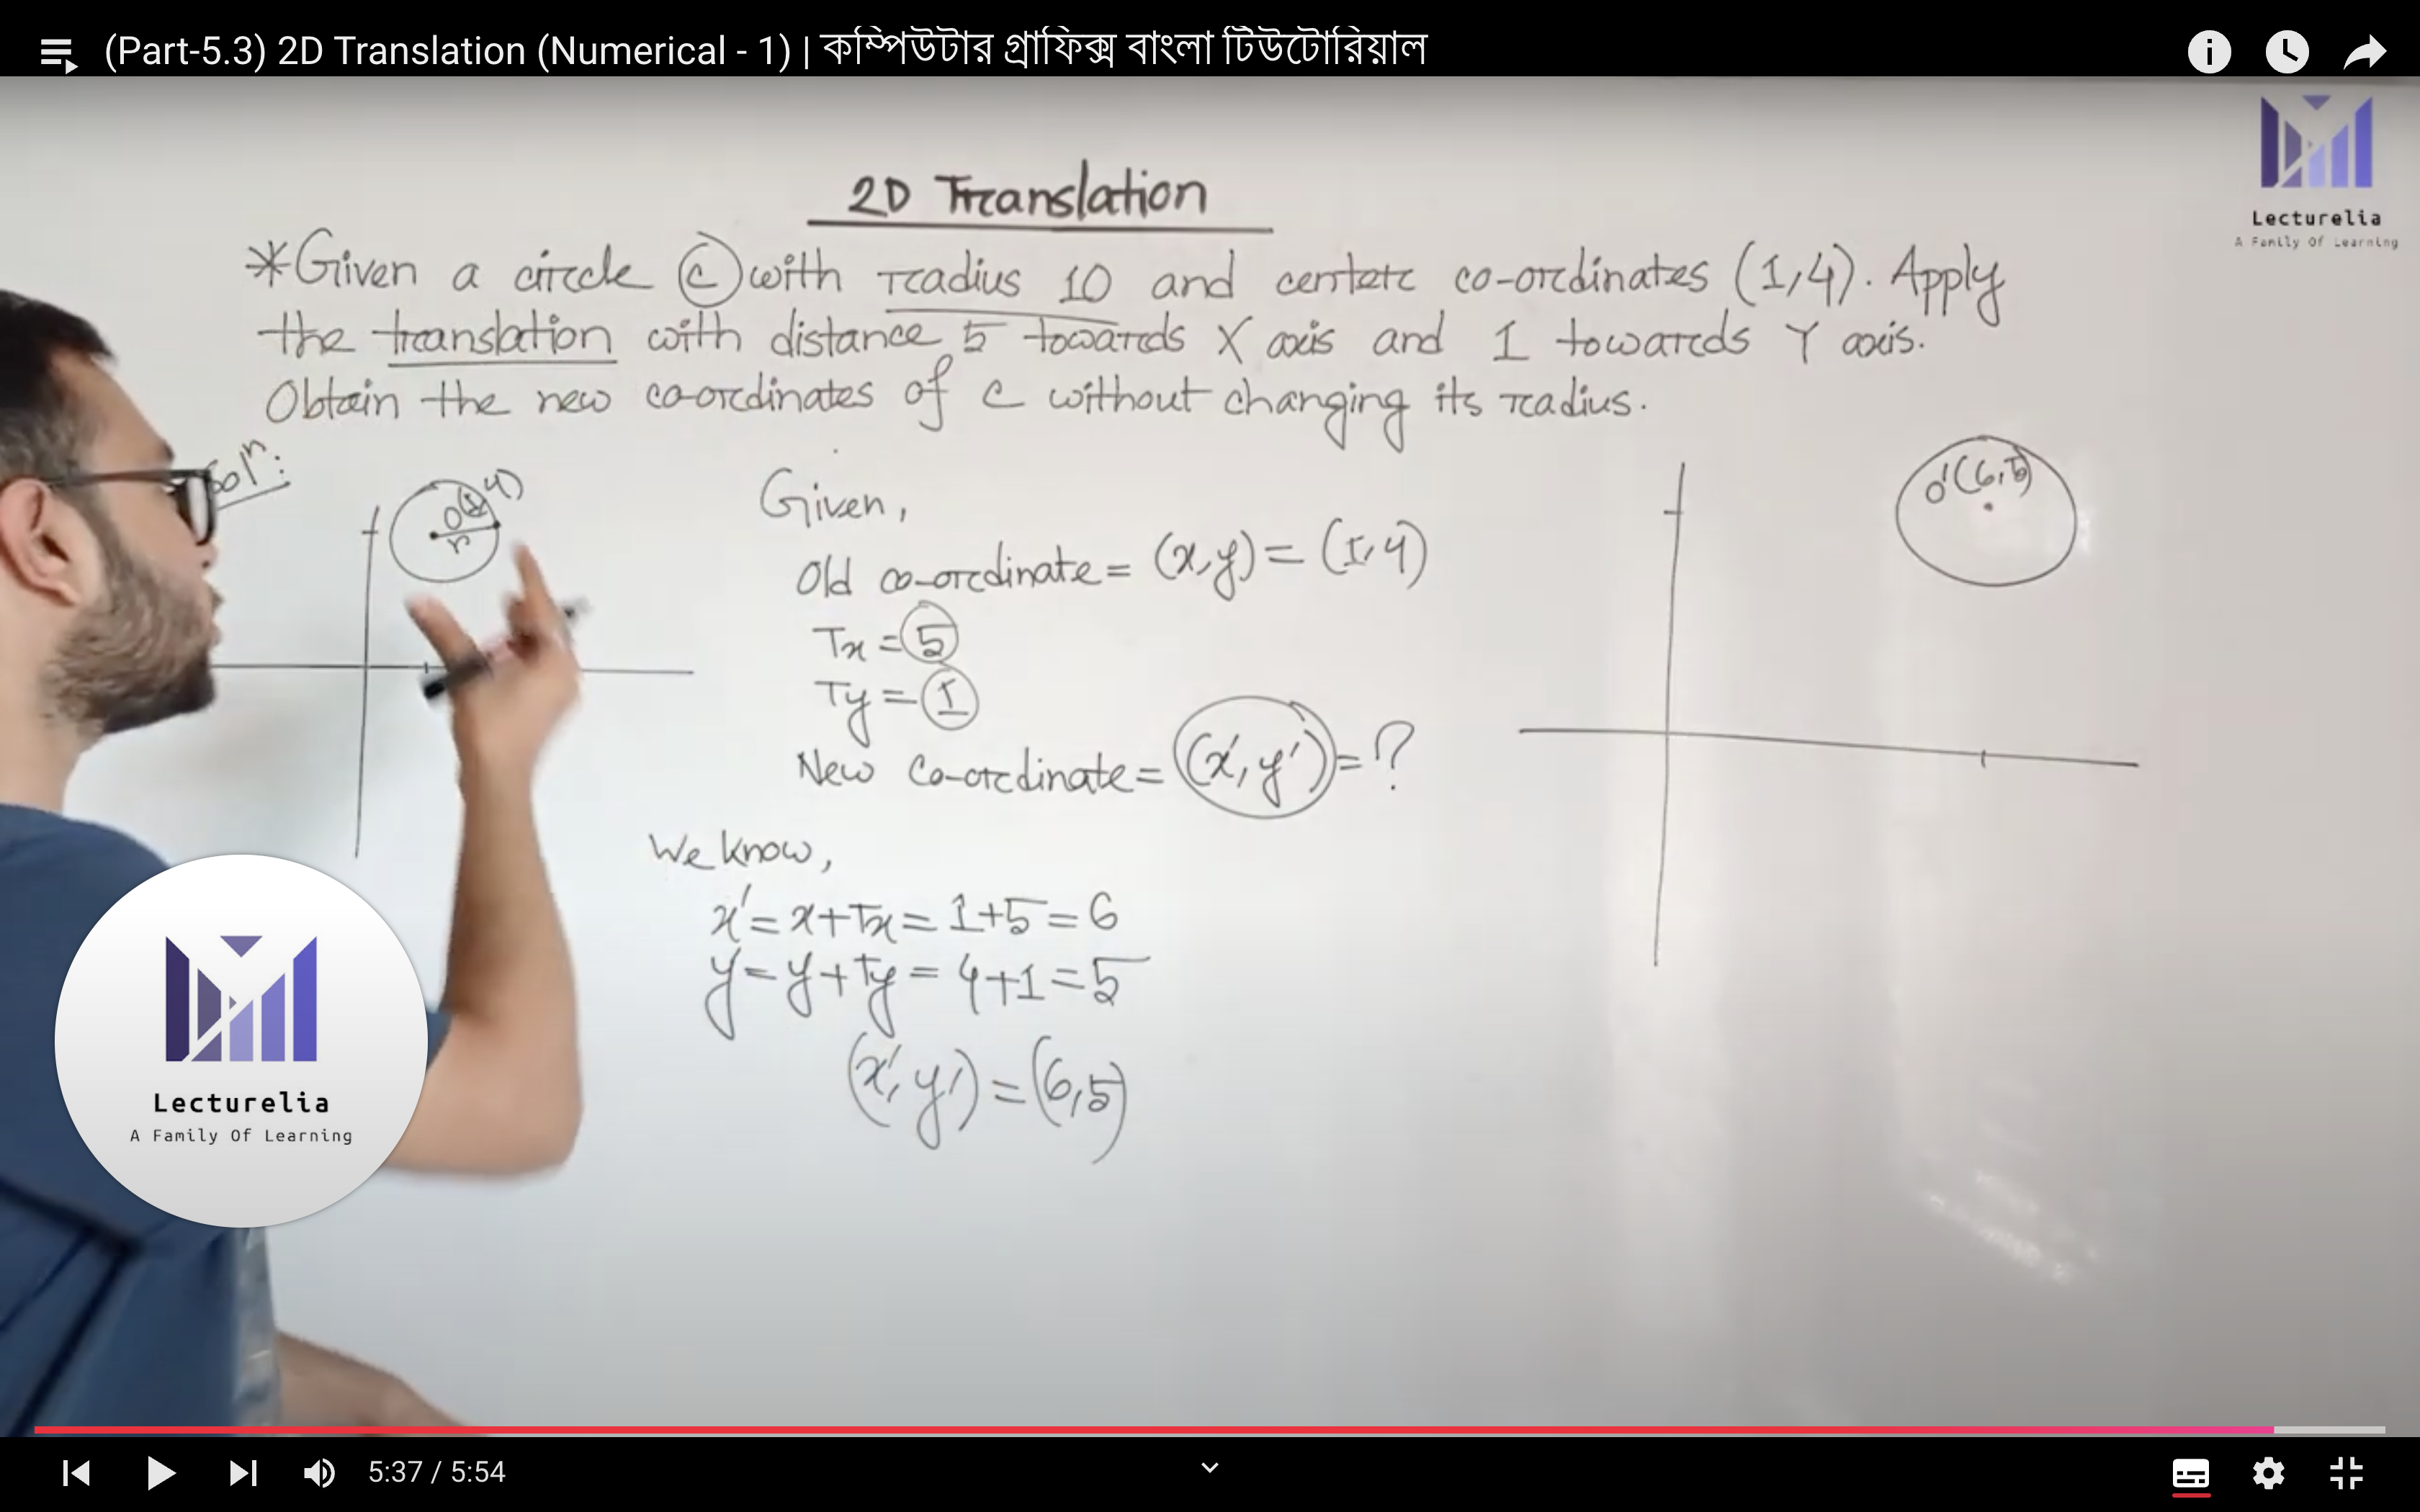 (Part-5.3) 2D Translation (Numerical - 1) | কম্পিউটার গ্রাফিক্স বাংলা টিউটোরিয়াল
Lecturelia
A Family Of Learning
2D Translation
*Given a circle C with radius 10 and center co-ordinates (1,4). Apply
the translation with distance 5 towards X axis and 1 towards Y axis.
Obtain the new co-ordinates of C without changing its radius.
Solⁿ:
O(1,4)
r
Given,
Old co-ordinate = (x,y) = (1,4)
Tx = 5
Ty = 1
New Co-ordinate = (x',y') = ?
O'(6,5)
We know,
x' = x+Tx = 1+5 = 6
y' = y+Ty = 4+1 = 5
(x',y') = (6,5)
Lecturelia
A Family Of Learning
5:37 / 5:54